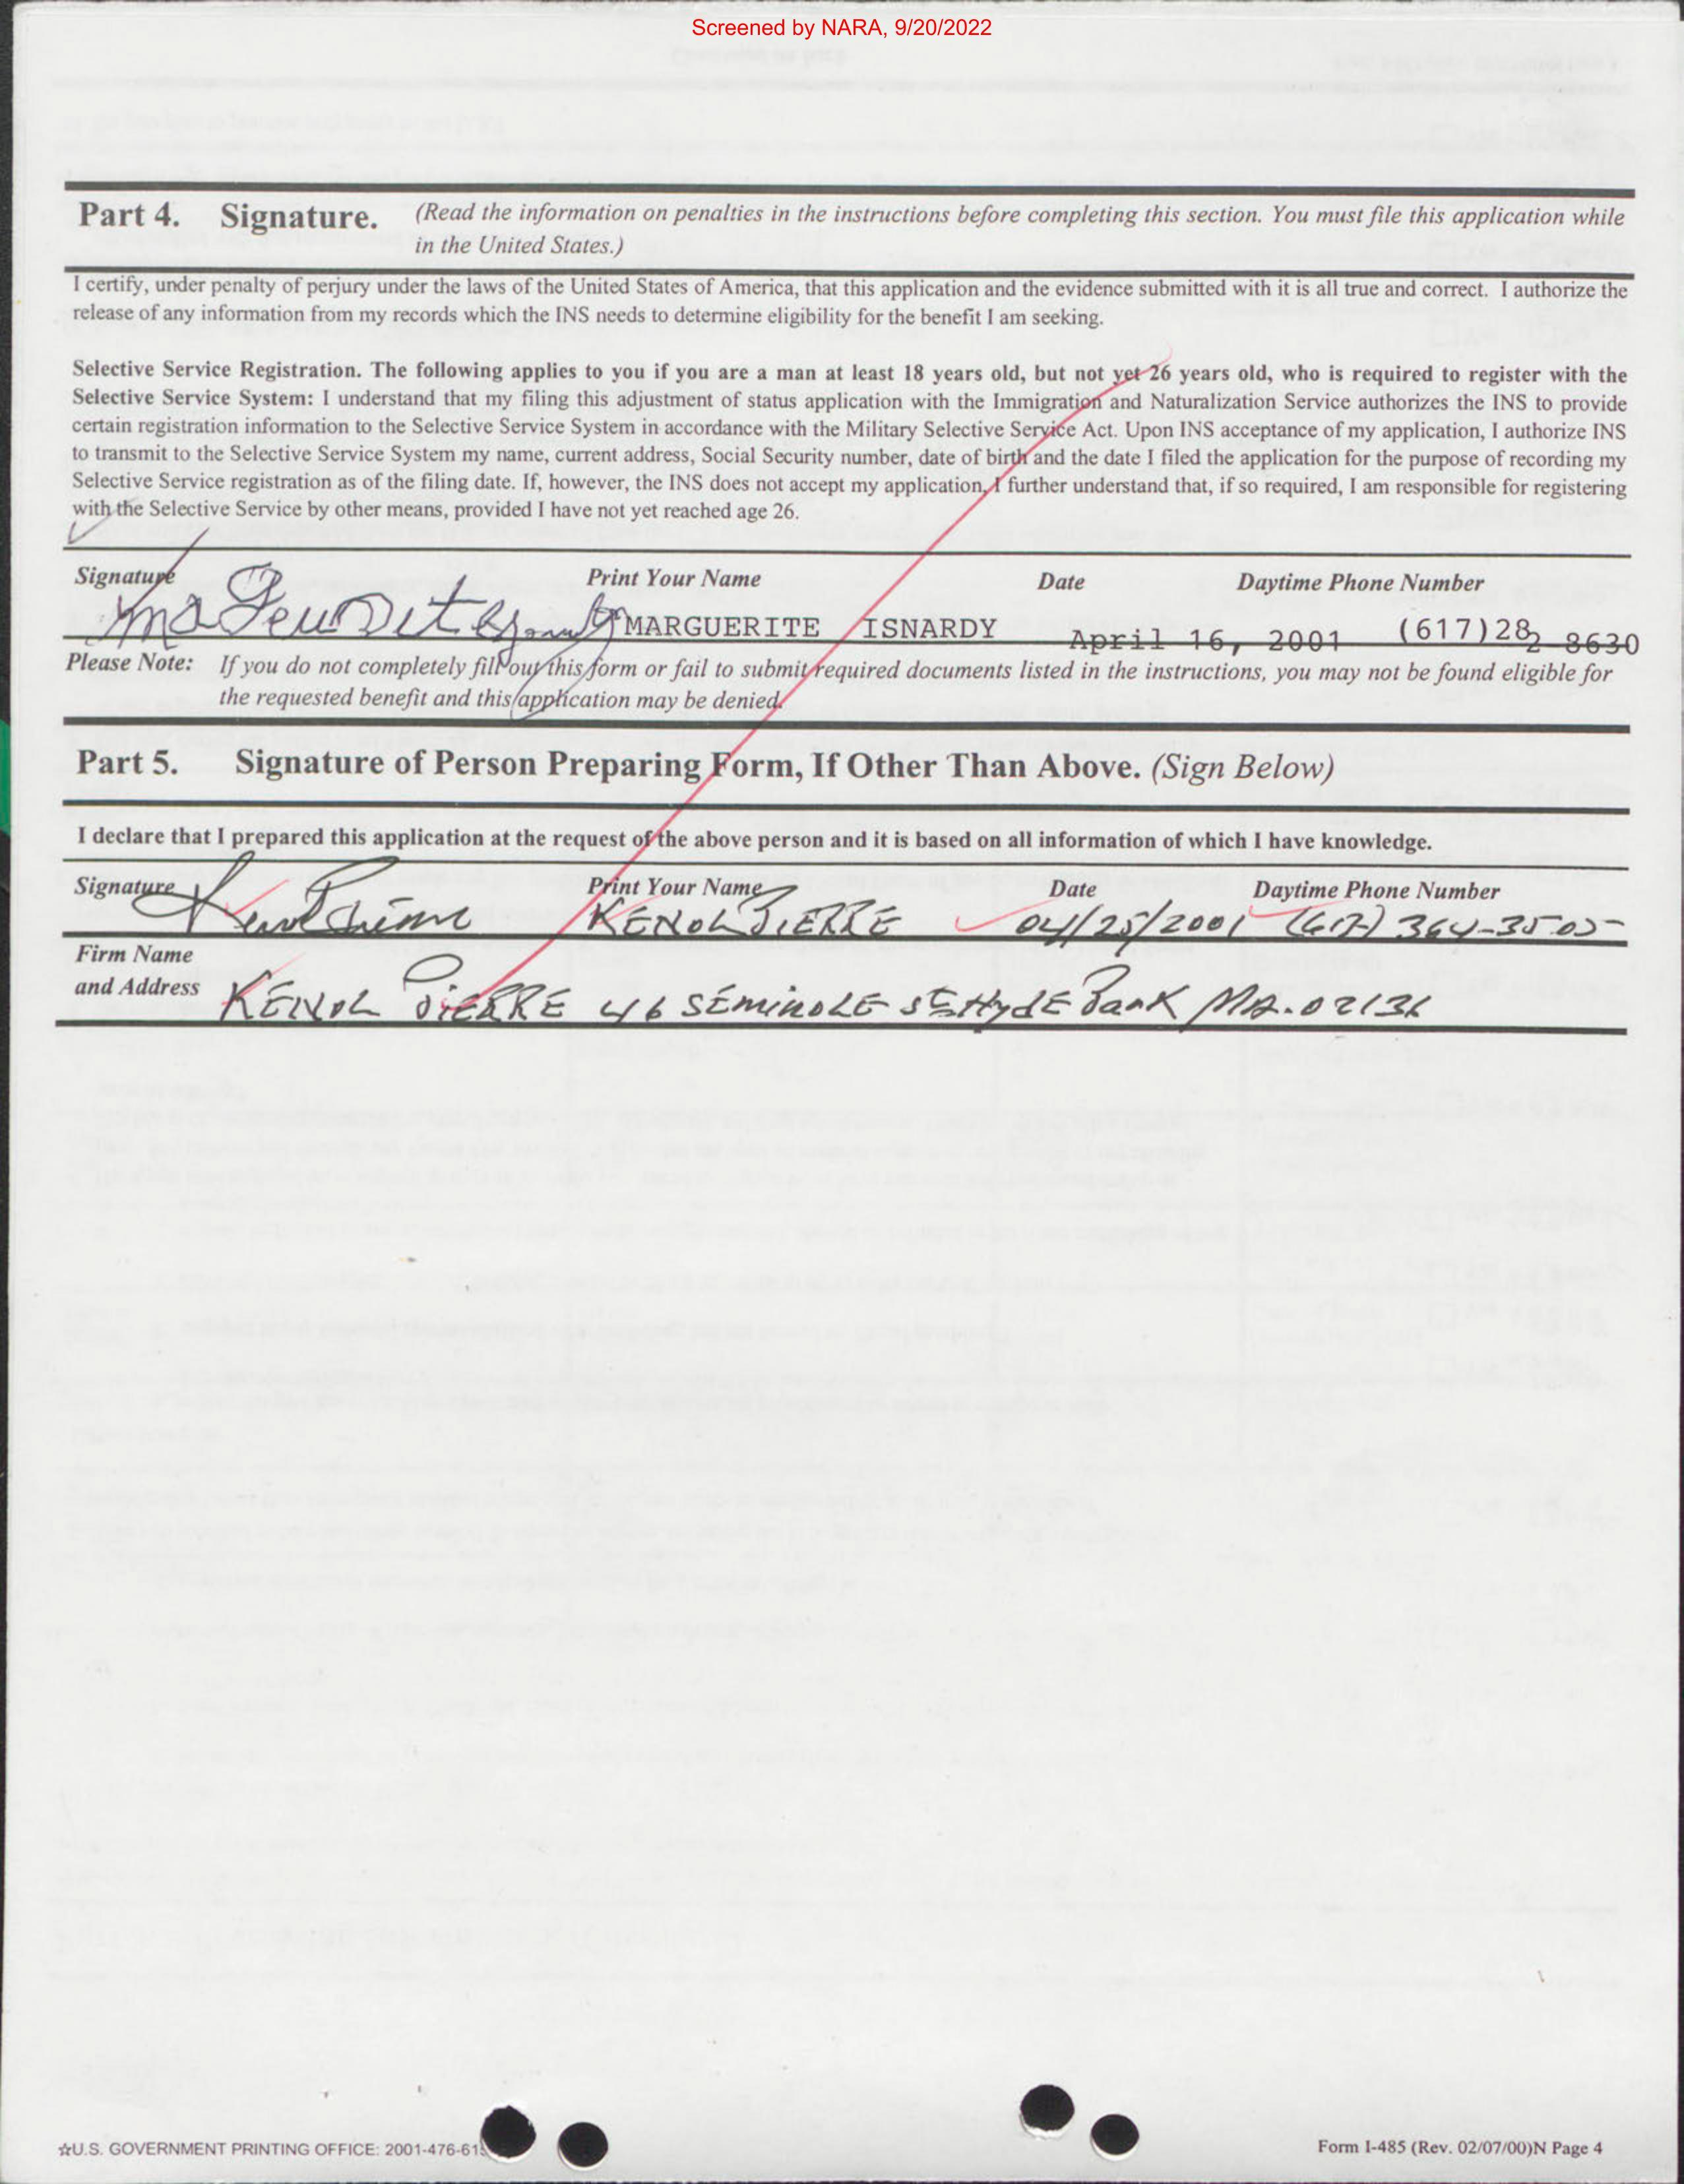 Screened by NARA, 9/20/2022
Part 4. Signature. (Read the information on penalties in the instructions before completing this section. You must file this application while
in the United States.)
I certify, under penalty of perjury under the laws of the United States of America, that this application and the evidence submitted with it is all true and correct. I authorize the
release of any information from my records which the INS needs to determine eligibility for the benefit I am seeking.
Selective Service Registration. The following applies to you if you are a man at least 18 years old, but not yet 26 years old, who is required to register with the
Selective Service System: I understand that my filing this adjustment of status application with the Immigration and Naturalization Service authorizes the INS to provide
certain registration information to the Selective Service System in accordance with the Military Selective Service Act. Upon INS acceptance of my application, I authorize INS
to transmit to the Selective Service System my name, current address, Social Security number, date of birth and the date I filed the application for the purpose of recording my
Selective Service registration as of the filing date. If, however, the INS does not accept my application, I further understand that, if so required, I am responsible for registering
with the Selective Service by other means, provided I have not yet reached age 26.
Signature Print Your Name Date Daytime Phone Number
MARGUERITE ISNARDY April 16, 2001 (617)282 8630
Please Note: If you do not completely fill out this form or fail to submit required documents listed in the instructions, you may not be found eligible for
the requested benefit and this application may be denied.
Part 5. Signature of Person Preparing Form, If Other Than Above. (Sign Below)
I declare that I prepared this application at the request of the above person and it is based on all information of which I have knowledge.
Signature Print Your Name Date Daytime Phone Number
KENOL PIERRE 04/25/2001 (617) 364-3505
Firm Name
and Address KENOL PIERRE 46 SEMINOLE St Hyde Park MA. 02136
☆U.S. GOVERNMENT PRINTING OFFICE: 2001-476-61
Form I-485 (Rev. 02/07/00)N Page 4